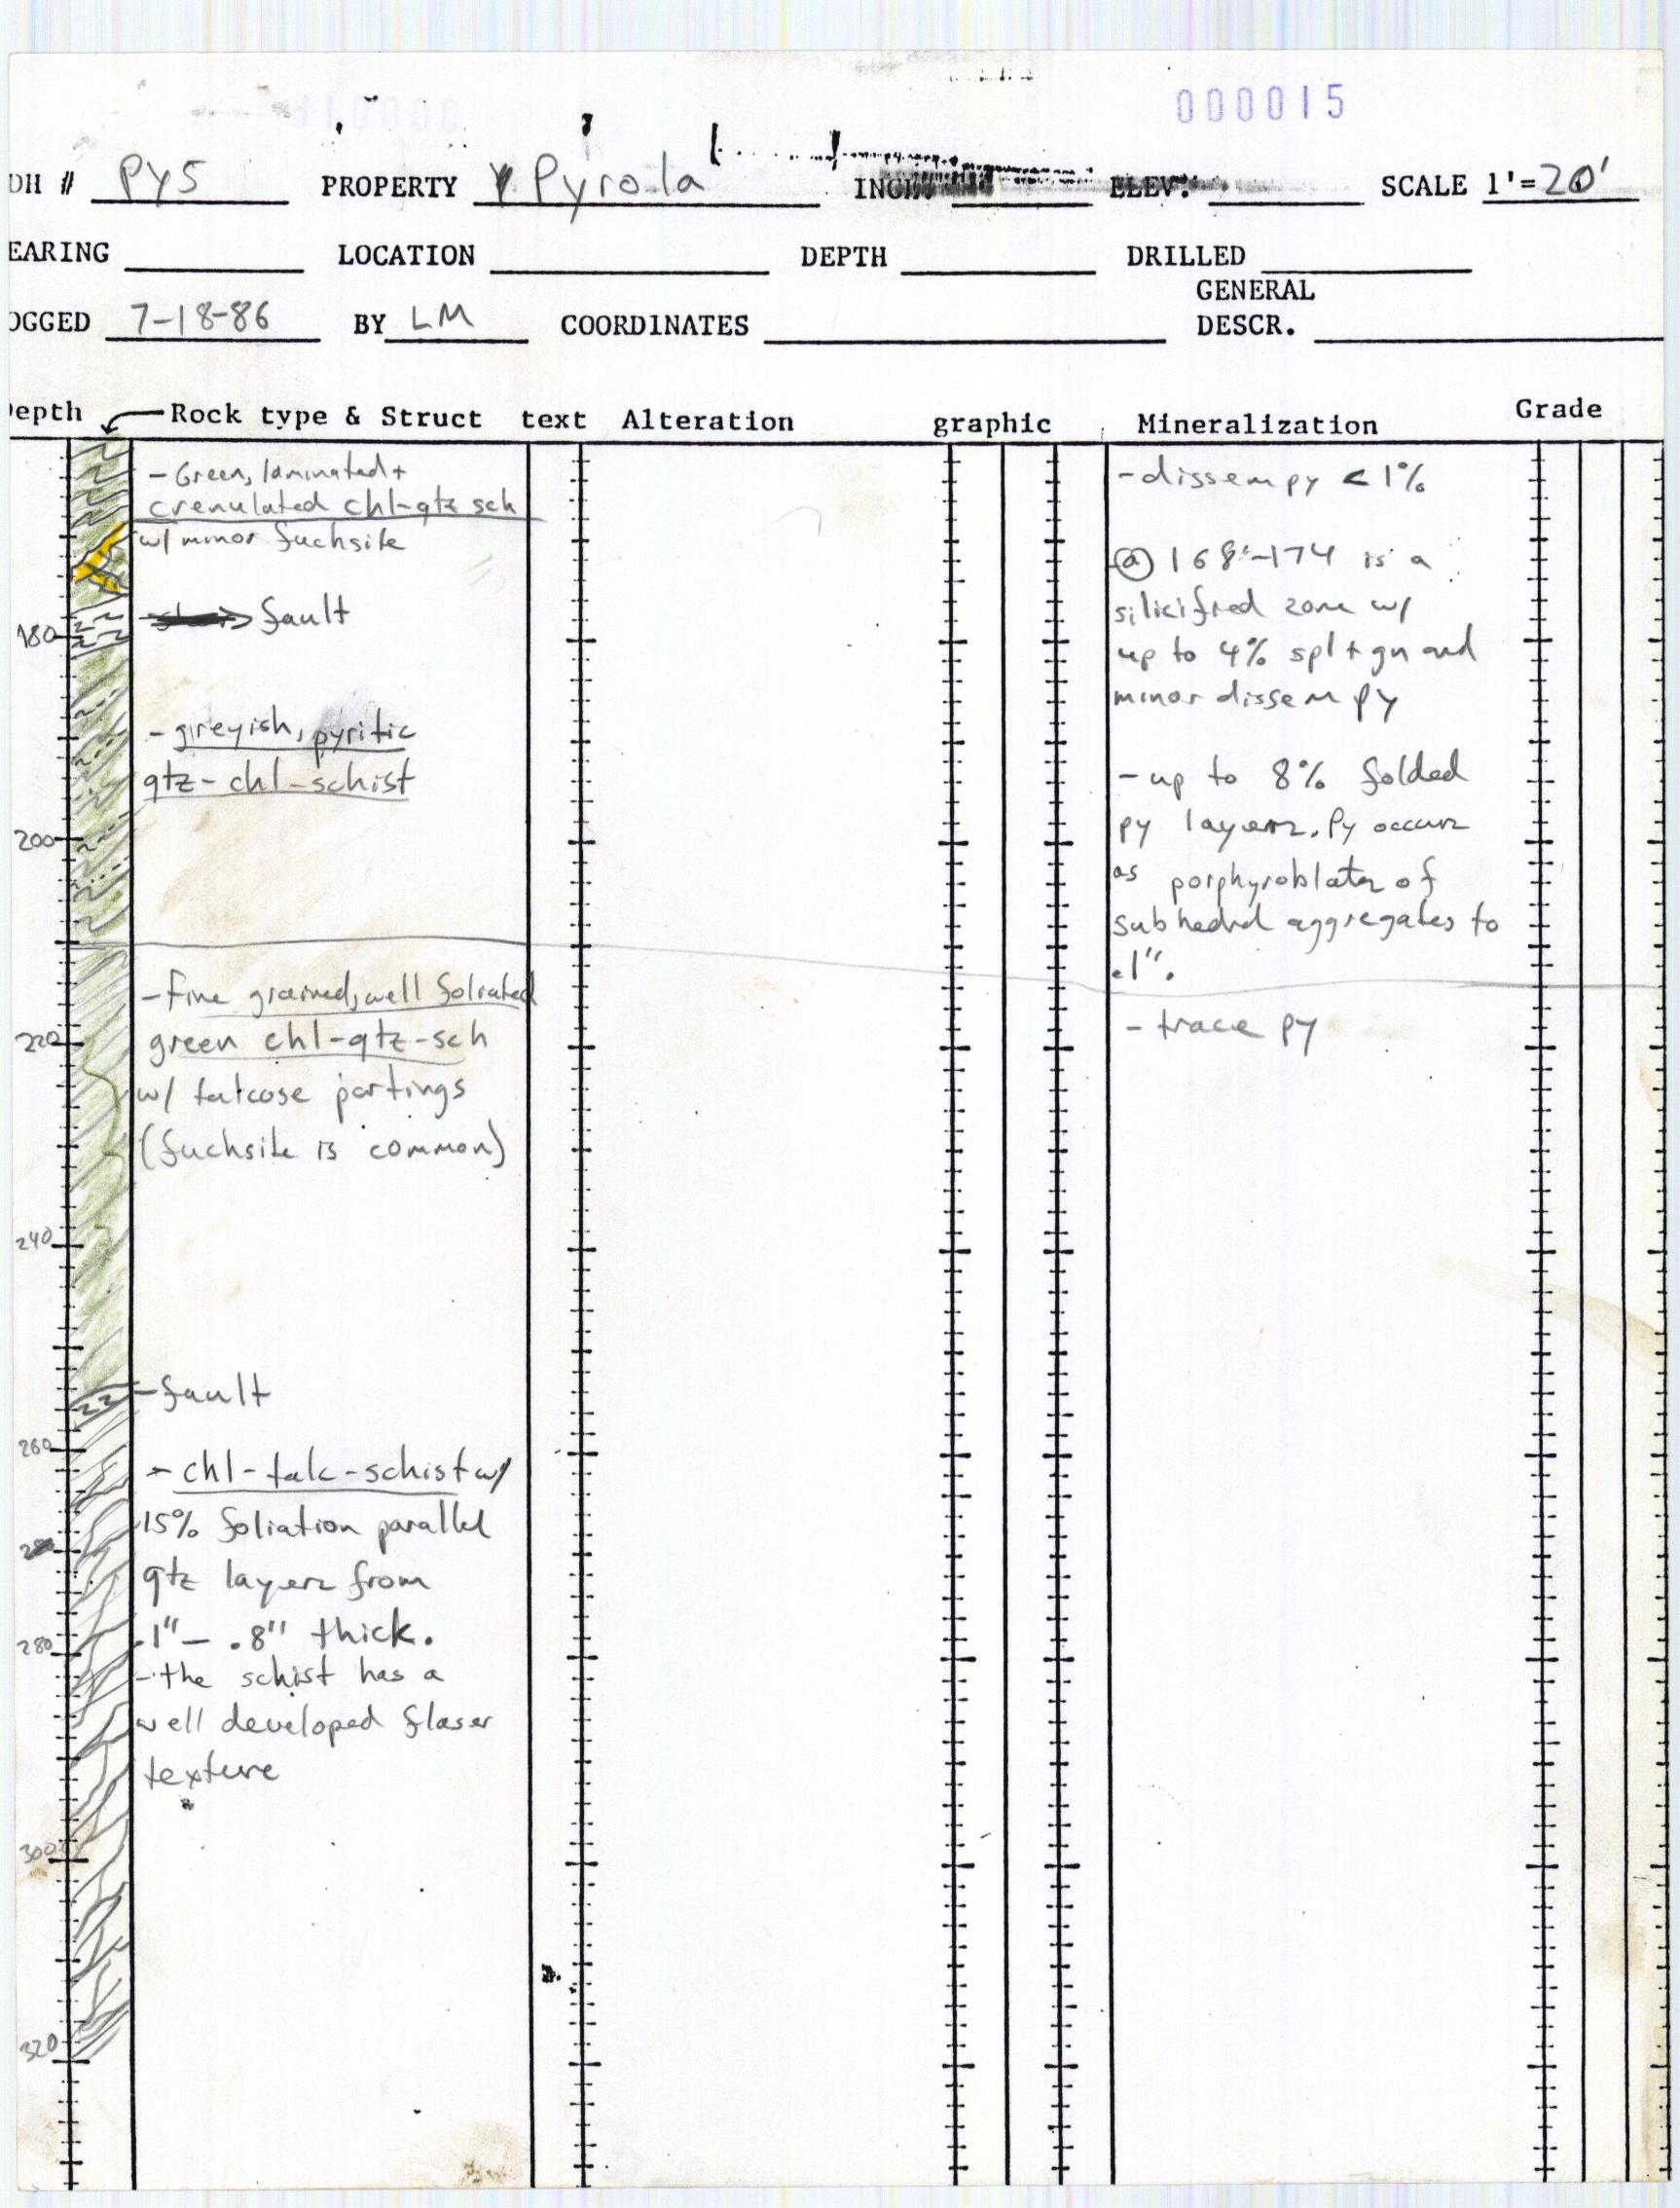 000015
DH # PY5 PROPERTY Pyrola INCL. ELEV. SCALE 1'=20'
EARING LOCATION DEPTH DRILLED
GENERAL
OGGED 7-18-86 BY LM COORDINATES DESCR.
epth Rock type & Struct text Alteration graphic Mineralization Grade
- Green, laminated +
crenulated chl-qtz sch
w/ minor fuchsite
fault
- greyish, pyritic
qtz-chl-schist
- Fine grained, well foliated
green chl-qtz-sch
w/ talcose partings
(fuchsite is common)
- fault
- chl-talc-schist w/
15% foliation parallel
qtz layers from
.1" - .8" thick.
- the schist has a
well developed flaser
texture
180
200
220
240
260
280
300
320
- dissem py < 1%
@ 168'-174 is a
silicified zone w/
up to 4% spl + gn and
minor dissem py
- up to 8% folded
py layers. Py occurs
as porphyroblats of
subhedral aggregates to
.1".
- trace py